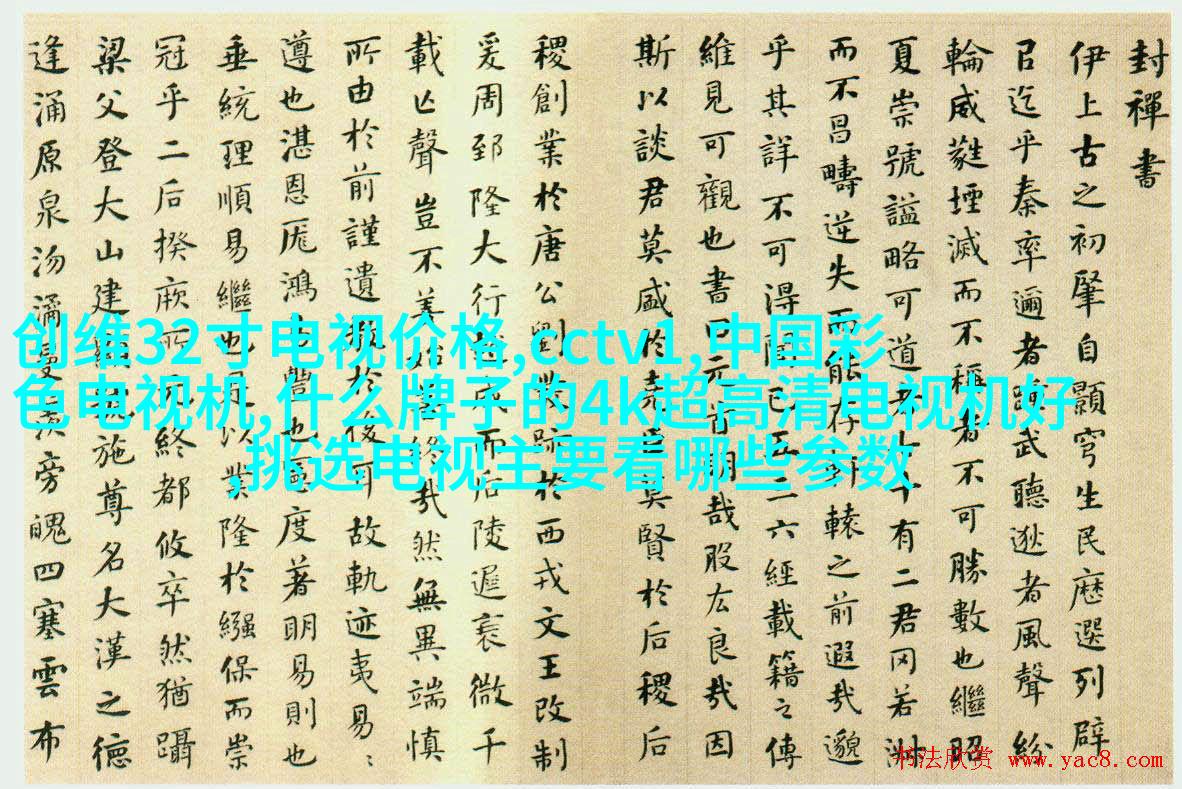 封禪書
伊上古之初肇自顥穹生民歷選列辟
㠯迄乎秦率邇者踵武聽逖者風聲紛
輪威蕤堙滅而不稱者不可勝數也繼昭
夏崇號謚略可道者七十有二君罔若淑
而不昌疇逆失而能存轅之前遐哉邈
乎其詳不可得聞已五二六經載籍之傳
維見可觀也書曰元首明哉股厷良哉因
斯以談君莫盛於堯臣莫賢於后稷后
稷創業於唐公劉發跡於西戎文王改制
爰周郅隆大行成而后陵遲衰微千
載亡聲豈不善始善終哉然無異端慎
所由於前謹遺於後耳故軌迹夷易、
遵也湛恩厖鴻也憲度著明易則也
垂統理順易繼也是以業隆於繈保而崇
冠乎二后揆厥所元終都攸卒然猶躡
梁父登大山建號施尊名大漢之德
逢涌原泉沕潏曼羨旁魄四塞雲布
创维32寸电视价格,cctv1,中国彩
色电视机,什么牌子的4k超高清电视机好
,挑选电视主要看哪些参数
书法欣赏 www.yac8.com